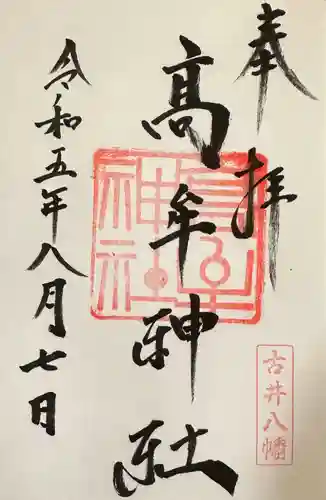 奉拝
髙牟神社
令和五年八月七日
髙牟神社
古井八幡